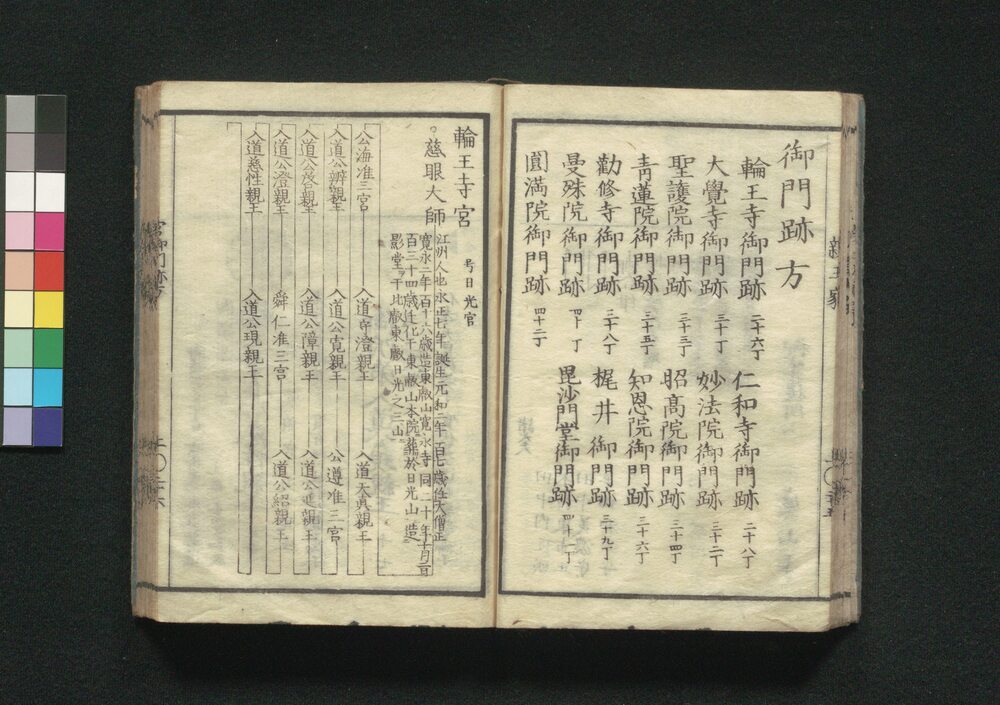 御門跡方
輪王寺御門跡 二十六丁
仁和寺御門跡 二十八丁
大覺寺御門跡 三十丁
妙法院御門跡 三十二丁
聖護院御門跡 三十三丁
照高院御門跡 三十四丁
青蓮院御門跡 三十五丁
知恩院御門跡 三十六丁
勸修寺御門跡 三十八丁
梶井御門跡 三十九丁
曼殊院御門跡 四十丁
毘沙門堂御門跡 四十一丁
圓満院御門跡 四十二丁
親王家
輪王寺宮 号日光宮
慈眼大師
江州人也永正七年誕生元和二年百七歳任大僧正
寛永二年百十六歳造東叡山寛永寺同二十年十月二日
百三十四歳迁化于東叡山本院葬於日光山造
影堂于比叡東叡日光之三山
公海准三宮
入道守澄親王
入道天眞親王
入道公辨親王
入道公寛親王
公遵准三宮
入道公啓親王
入道公障親王
入道公延親王
入道公澄親王
舜仁准三宮
入道公紹親王
入道慈性親王
入道公現親王
宮御門跡方
上〇二十六